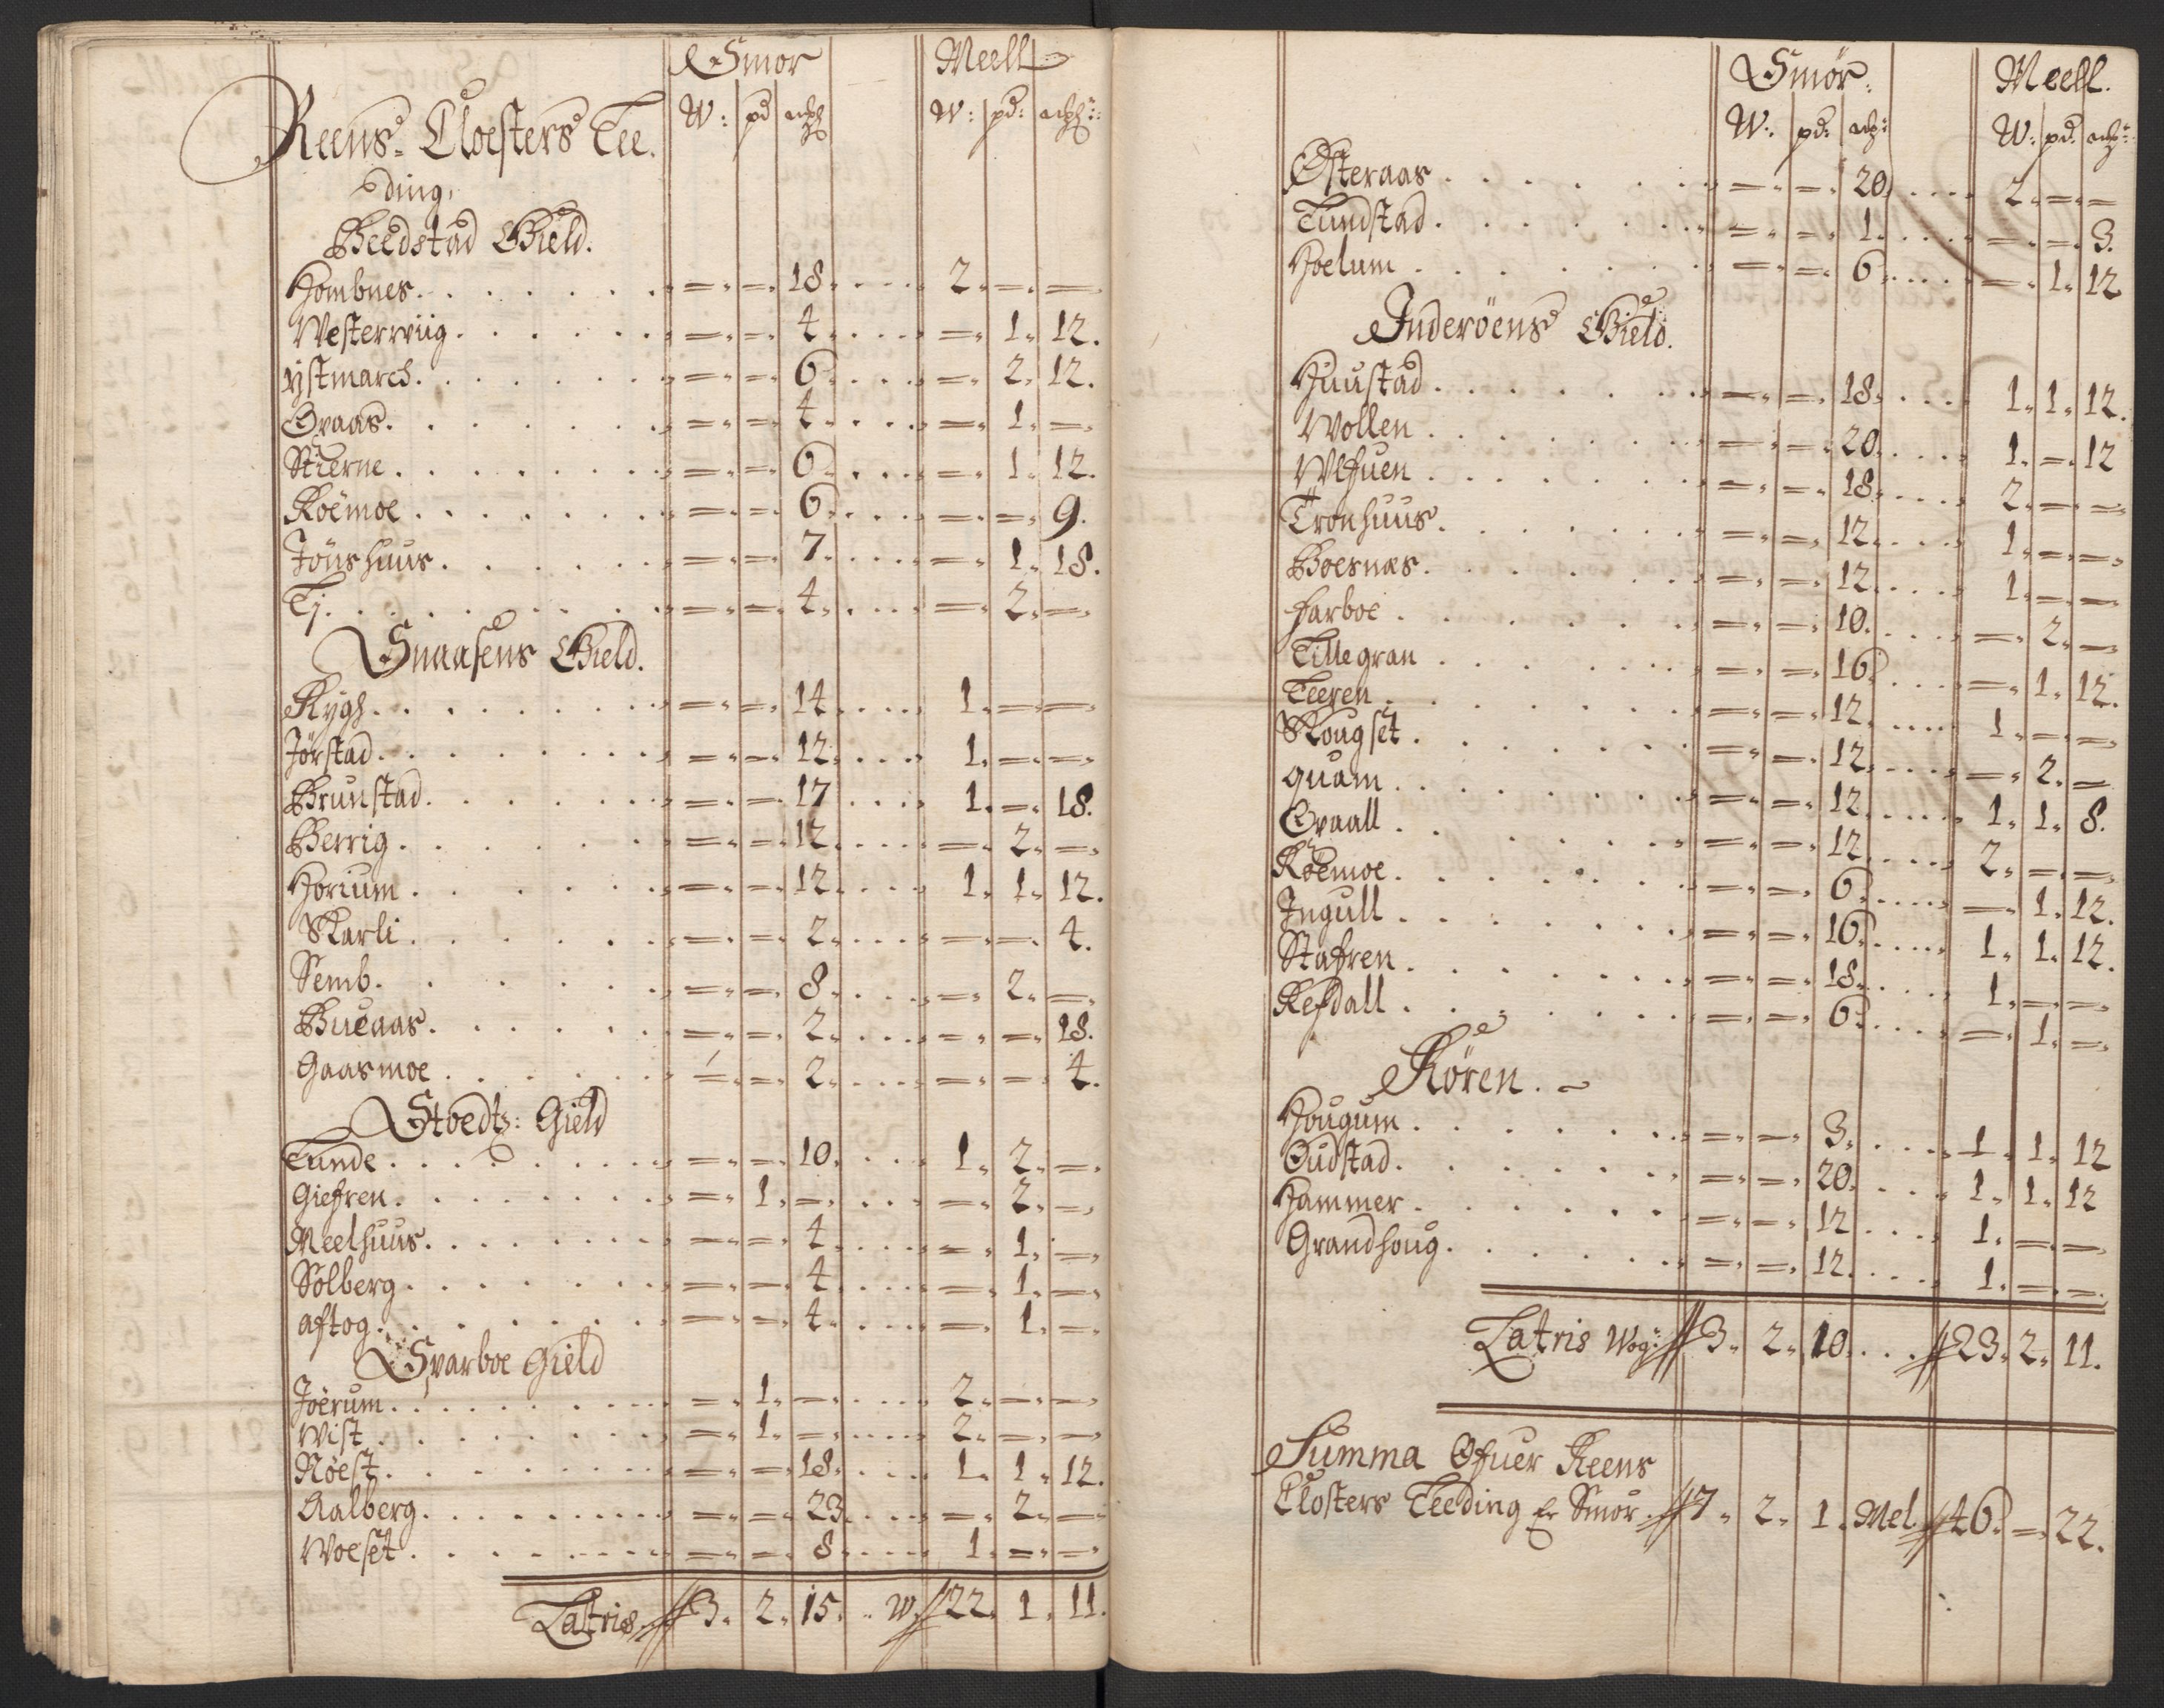 Smør Meell
W: pd W: pd:
Reens Closters Tee
ding,
Beedstad Gield.
Hombnes. . . . . . . = = 18. . . . 2. = =
Westerwiig. . . . . . = = 4. . . . = 1. 12.
ÿstmarch. . . . . . . = = 6. . . . = 2. 12.
Qvaas. . . . . . . = = 4. . . . = 1. =
Stierne. . . . . . . = = 6. . . . = 1. 12.
Roëmoe. . . . . . . = = 6. . . . = = 9.
Jönshuus. . . . . . = = 7. . . . = 1. 18.
Tj. . . . . . . . = = 4. . . . = 2. =
Snaasens Gield.
Rygh. . . . . . . . = = 14. . . . 1. = =
Jørstad. . . . . . . = = 12. . . . 1. = =
Brunstad. . . . . . = = 17. . . . 1. = 18.
Berrig. . . . . . . = = 12. . . . = 2. =
Horium. . . . . . . = = 12. . . . 1. 1. 12.
Skarli. . . . . . . = = 2. . . . = = 4.
Semb. . . . . . . = = 8. . . . = 2. =
Bueaas. . . . . . . = = 2. . . . = = 18.
Gaasmoe. . . . . . = = 2. . . . = = 4.
Stoedtz: Gield
Tunde. . . . . . . = = 10. . . . 1. 2. =
Giefren. . . . . . . = 1. = . . . = 2. =
Meelhuus. . . . . . = = 4. . . . = 1. =
Solberg. . . . . . . = = 4. . . . = 1. =
aftog. . . . . . . = = 4. . . . = 1. =
Sparboe Gield
Joërum. . . . . . . = 1. = . . . 2. = =
Wist. . . . . . . . = 1. = . . . 2. = =
Røest. . . . . . . = = 18. . . . 1. 1. 12.
Aalberg. . . . . . . = = 23. . . . = 2. =
Woeset. . . . . . . = = 8. . . . 1. = =
Latris 3. 2. 15. . W. 22. 1. 11.
Smør: Meell.
W: pd: W: pd:
Østeraas. . . . . . . = = 20. . . . 2. = =
Tundstad. . . . . . = = 1. . . . = = 3.
Hoelum. . . . . . . = = 6. . . . = 1. 12
Inderöens Gield.
Huustad. . . . . . . = = 18. . . . 1. 1. 12.
Wollen. . . . . . . = = 20. . . . 1. = 12
Wlfuen. . . . . . . = = 18. . . . 2. = =
Tronhuus. . . . . . = = 12. . . . 1. = =
Boesnæs. . . . . . . = = 12. . . . 1. = =
farboe. . . . . . . = = 10. . . . = 2. =
Tillegran. . . . . . = = 16. . . . = 1. 12.
Teeren. . . . . . . = = 12. . . . 1. = =
Skougset. . . . . . = = 12. . . . = 2. =
quam. . . . . . . = = 12. . . . 1. 1. 8.
Qvaall. . . . . . . = = 12. . . . 2. = =
Roëmoe. . . . . . . = = 6. . . . = 1. 12.
Ingull. . . . . . . = = 16. . . . 1. 1. 12.
Stafren. . . . . . . = = 18. . . . 1. = =
Refdall. . . . . . . = = 6. . . . = 1. =
Rören.
Hougum. . . . . . . = = 3. . . . 1 1. 12
Oudstad. . . . . . . = = 20. . . . 1. 1. 12
Hammer. . . . . . . = = 12. . . . 1. = =
Grandhoug. . . . . . = = 12. . . . 1. = =
Latris Wog: 3. 2. 10. . . . 23. 2. 11.
Summa Ofuer Reens
Closters Teeding Er Smör. 7. 2. 1. Mel 46. = 22.